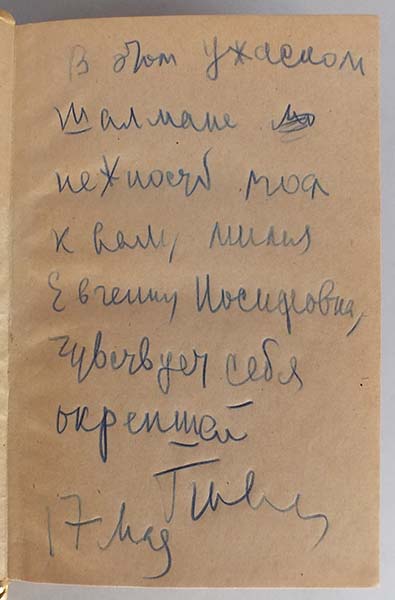 В этом ужасном
шалмане
нежность моя
к вам, милая
Евгения Иосифовна,
чувствует себя
окрепшей
17 мая